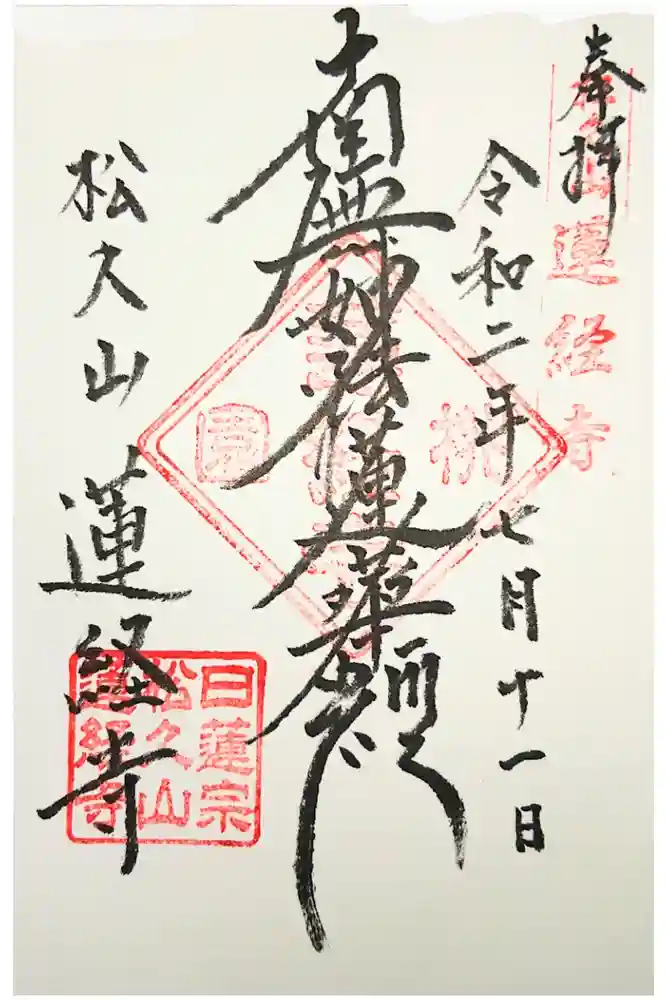 奉拝
蓮経寺
令和二年七月十一日
南無妙法蓮華経
松久山
蓮経寺
日蓮宗
松久山
蓮経寺